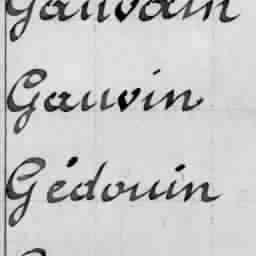 Gauvain
Gauvin
Gédouin